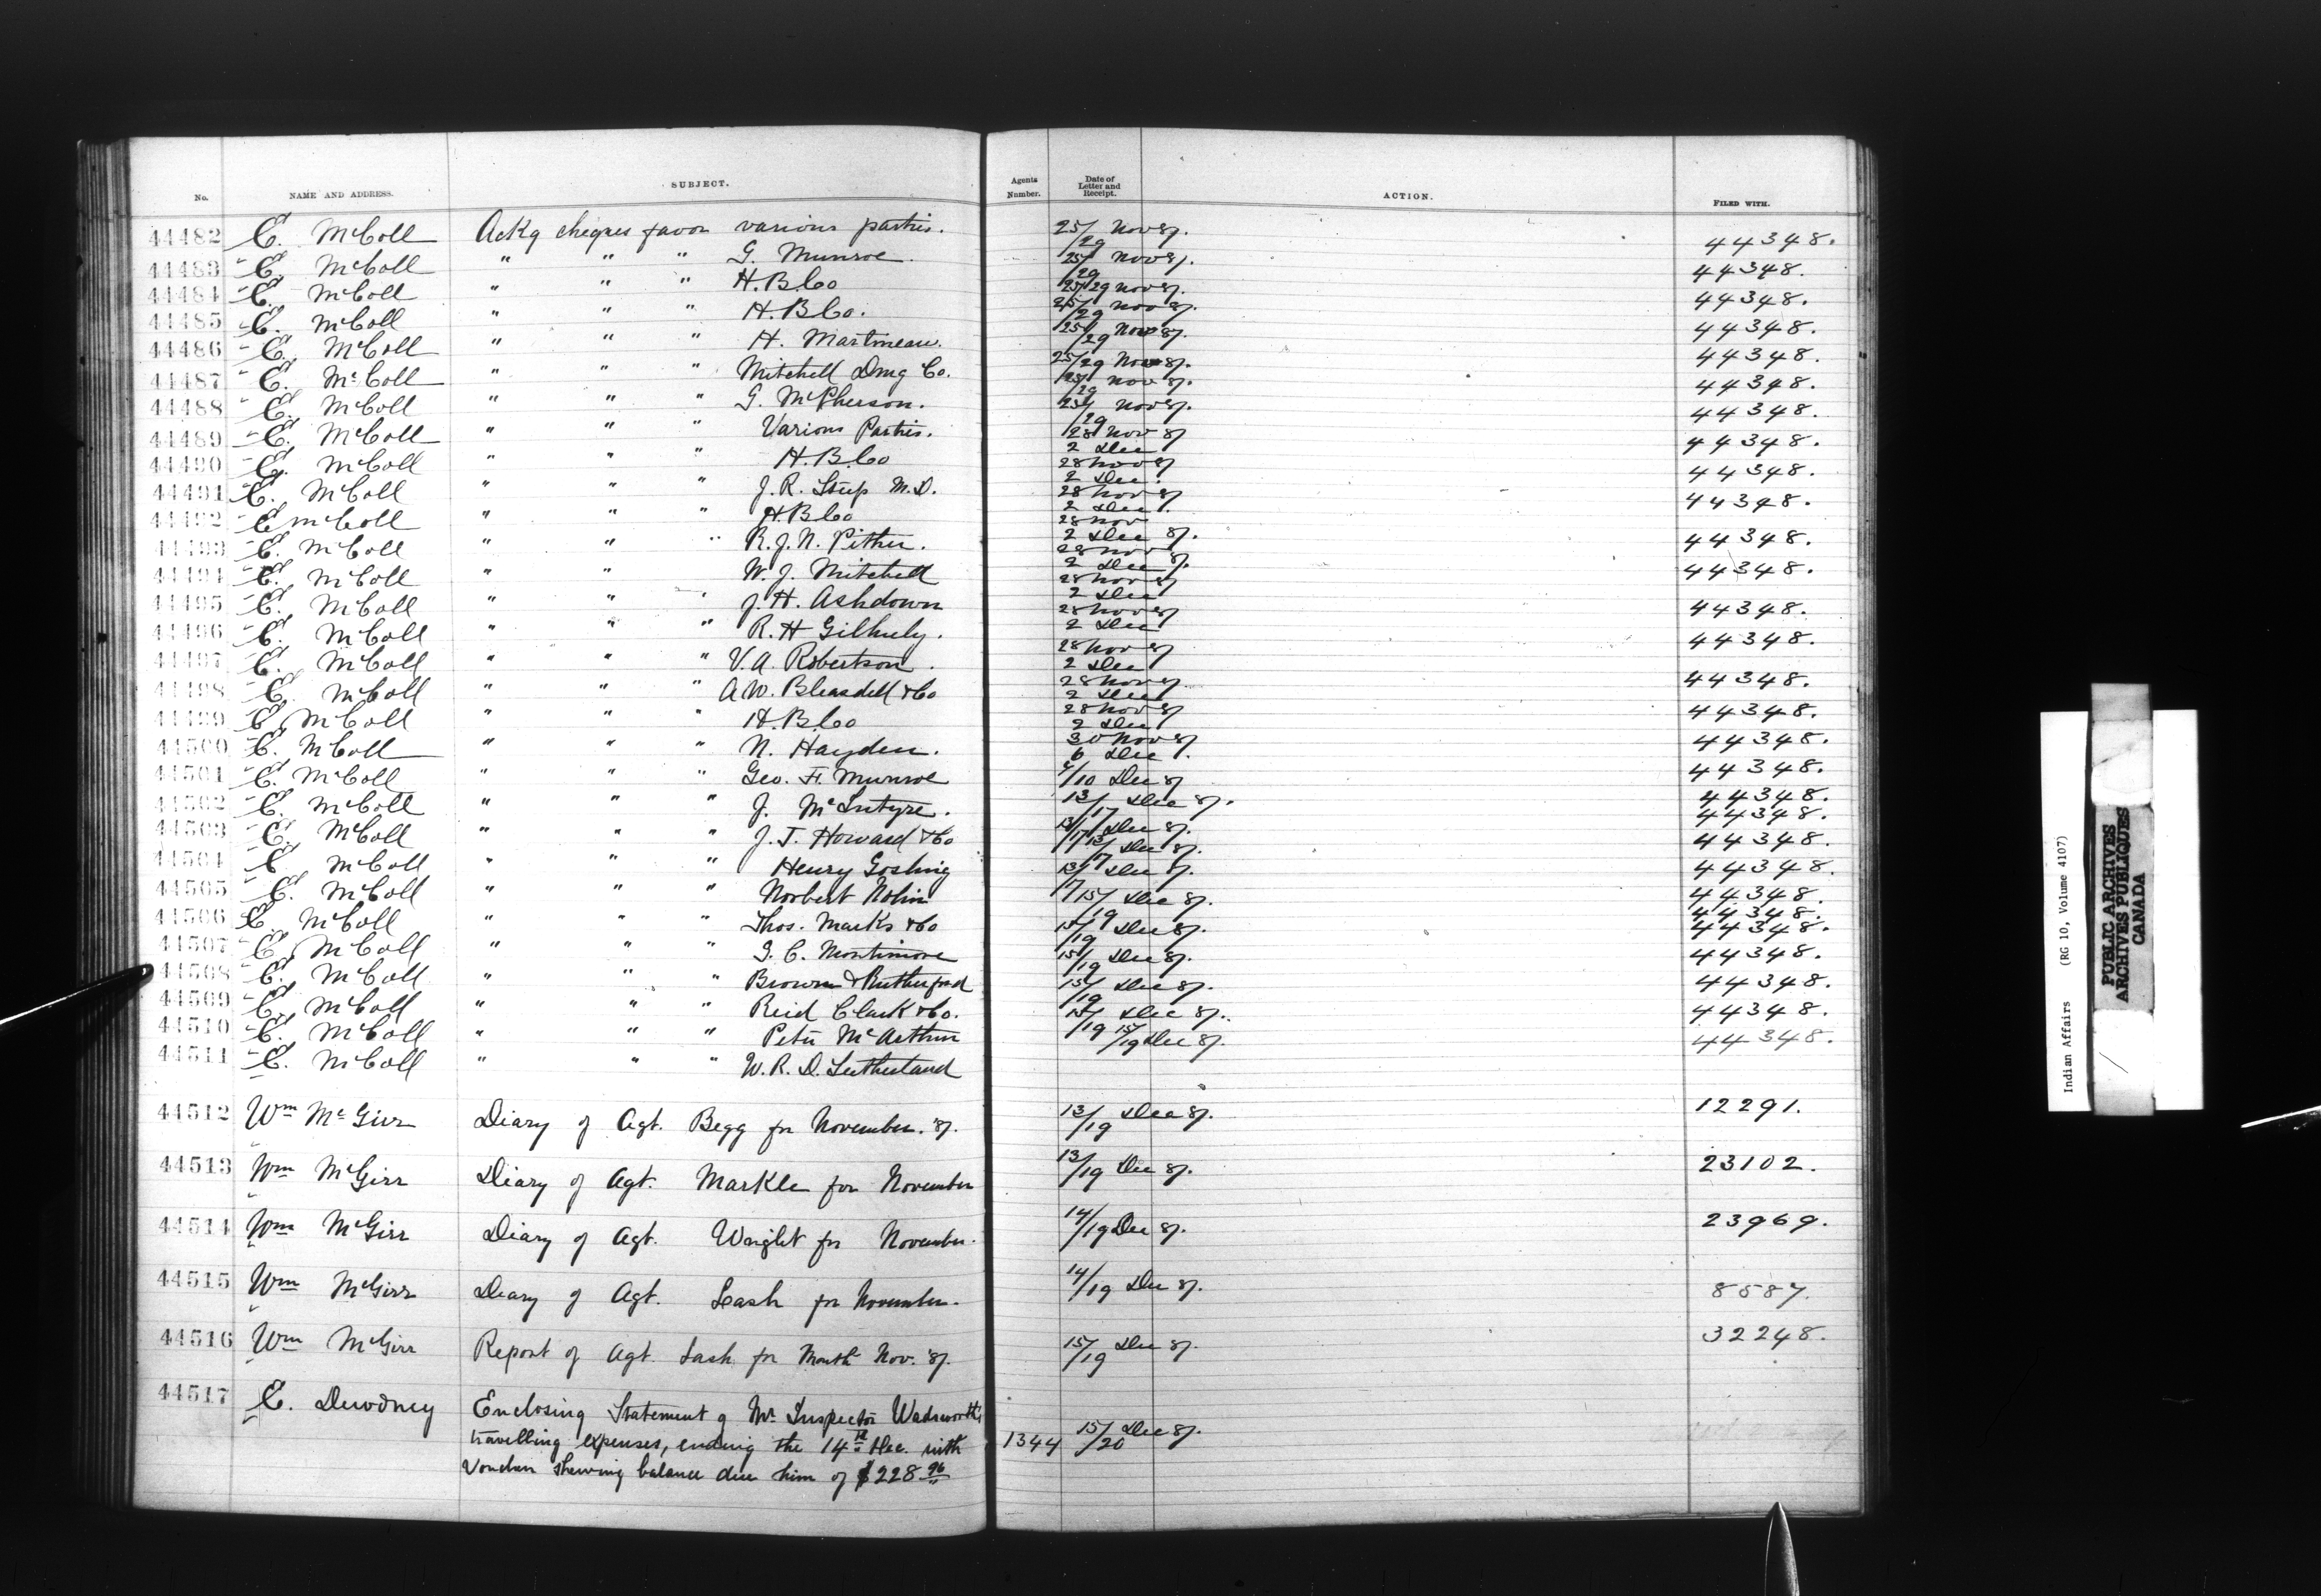 No. NAME AND ADDRESS. SUBJECT. Agents Number. Date of Letter and Receipt. ACTION. FILED WITH.
44482 E. McColl Ackg cheques favor various parties. 25/29 Nov 87. 44348.
44483 E. McColl " " " G. Munroe. 25/29 Nov 87. 44348.
44484 E. McColl " " " H.B.Co 25/29 Nov 87. 44348.
44485 E. McColl " " " H.B.Co. 25/29 Nov 87. 44348.
44486 E. McColl " " " H. Martineau. 25/29 Nov 87. 44348.
44487 E. McColl " " " Mitchell Drug Co. 25/29 Nov 87. 44348.
44488 E. McColl " " " G. McPherson. 25/29 Nov 87. 44348.
44489 E. McColl " " " Various Parties. 25/29 Nov 87. 44348.
44490 E. McColl " " " H.B.Co 28 Nov 87 2 Dec 44348.
44491 E. McColl " " " J. R. M.D. 28 Nov 87 2 Dec. 44348.
44492 E McColl " " " H.B.Co 28 Nov 87 2 Dec.
44493 E. McColl " " " R. J. N. Pither. 28 Nov 2 Dec 87. 44348.
44494 E. McColl " " W. J. Mitchell 28 Nov 2 Dec 87. 44348.
44495 E. McColl " " " J. H. Ashdown 28 Nov 87 2 Dec 44348.
44496 E. McColl " " " R. H Gilhuly. 28 Nov 87 2 Dec 44348.
44497 E. McColl " " " V. A. Robertson. 28 Nov 87 2 Dec 44348.
44498 E. McColl " " " A. W. Bleasdell & Co 28 Nov 87 2 Dec 44348.
44499 E McColl " " " H.B.Co 28 Nov 87 2 Dec 44348.
44500 E. McColl " " " N. Hayden. 30 Nov 87 6 Dec. 44348.
44501 E. McColl " " " Geo. F. Munroe /10 Dec 87 44348.
44502 E. McColl " " " J. McIntyre. 13/17 Dec 87. 44348.
44503 E. McColl " " " J. T. Howard & Co 13/17 Dec 87. 44348.
44504 E McColl " " " Henry Gosling 13/17 Dec 87. 44348.
44505 E. McColl " " " Norbert Nolin 13/17 Dec 87. 44348.
44506 E. McColl " " " Thos. Marks & Co 15/19 Dec 87. 44348.
44507 E. McColl " " " G. C. Mortimore 15/19 Dec 87. 44348.
44508 E. McColl " " " Brown & Rutherford 15/19 Dec 87. 44348.
44509 E. McColl " " " Reid Clark & Co. 15/19 Dec 87. 44348.
44510 E. McColl " " " Peter McArthur 15/19 Dec 87. 44348.
44511 E. McColl " " " W. R. D. Sutherland 15/19 Dec 87. 44348.
44512 Wm McGirr Diary of Agt. Begg for November. '87. 13/19 Dec 87. 12291.
44513 Wm McGirr Diary of Agt. Markle for November 13/19 Dec 87. 23102.
44514 Wm McGirr Diary of Agt. Wright for November. 14/19 Dec 87. 23969.
44515 Wm McGirr Diary of Agt. Lash for November. 14/19 Dec 87. 8587.
44516 Wm McGirr Report of Agt. Lash for Month Nov. '87. 15/19 Dec 87. 32248.
44517 E. Dewdney Enclosing Statement of Mr Inspector Wadsworth's
travelling expenses, ending the 14th Dec. with 1344 15/20 Dec 87.
Voucher shewing balance due him of $228 96
Indian Affairs (RG 10, Volume 4107)
PUBLIC ARCHIVES
ARCHIVES PUBLIQUES
CANADA